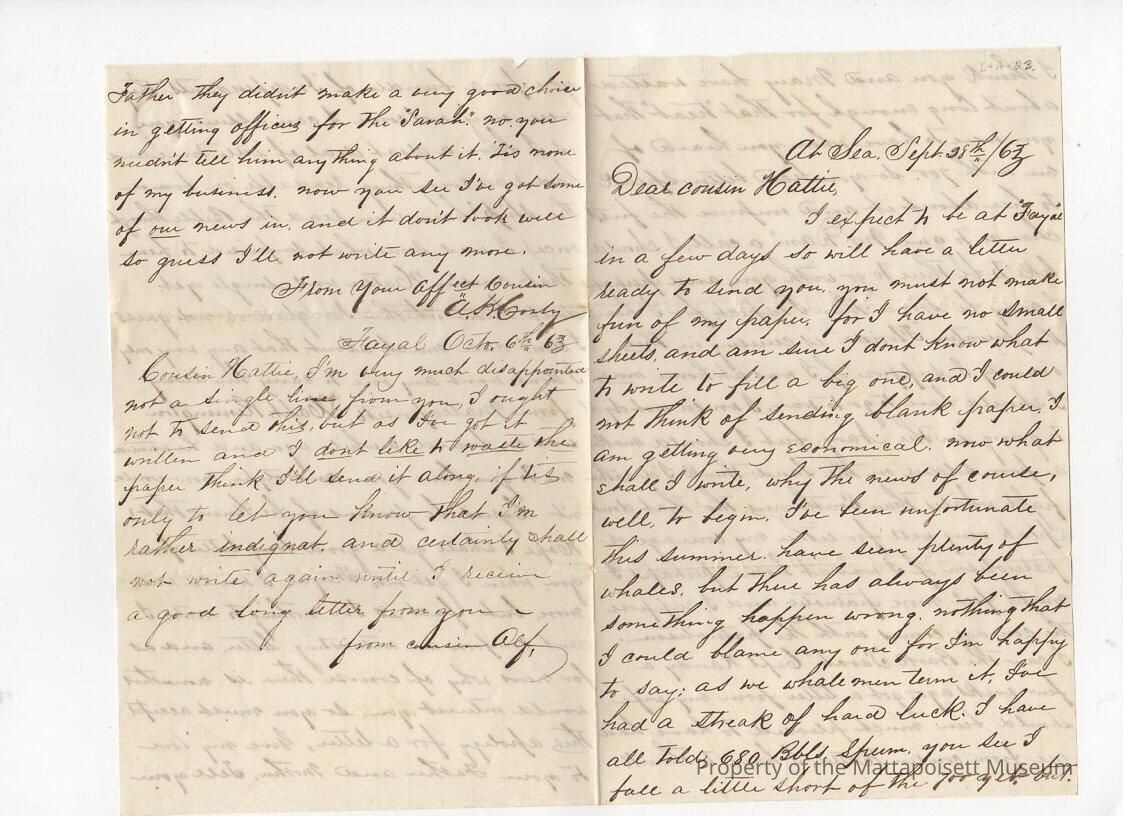 L-A-23.
At Sea, Sept. 28th/63
Dear cousin Hattie,
I expect to be at "Fayal
in a few days so will have a letter
ready to send you, you must not make
fun of my paper, for I have no small
sheets, and am sure I dont know what
to write to fill a big one, and I could
not think of sending blank paper, I
am getting very economical. now what
shall I write, why the news of course,
well, to begin, I've been unfortunate
this summer. have seen plenty of
whales, but there has always been
something happen wrong. nothing that
I could blame any one for I'm happy
to say; as we whalemen term it, I've
had a streak of hard luck. I have
all told, 680 Bbls Sperm, you see I
fall a little short of the 700 yet, but.
Father they didn't make a very good choice
in getting officers for the "Sarah". no you
needn't tell him anything about it. 'Tis none
of my business. now you see I've got some
of our news in, and it don't look well
so guess I'll not write any more.
From Your Affect Cousin
Fayal Octo. 6th 63
Cousin Hattie, I'm very much disappointed
not a single line from you, I ought
not to send this, but as I've got it
written and I dont like to waste the
paper think I'll send it along, if 'tis
only to let you know that I'm
rather indignat, and certainly shall
not write again until I receive
a good long letter from you
from cousin Alf,
Property of the Mattapoisett Museum